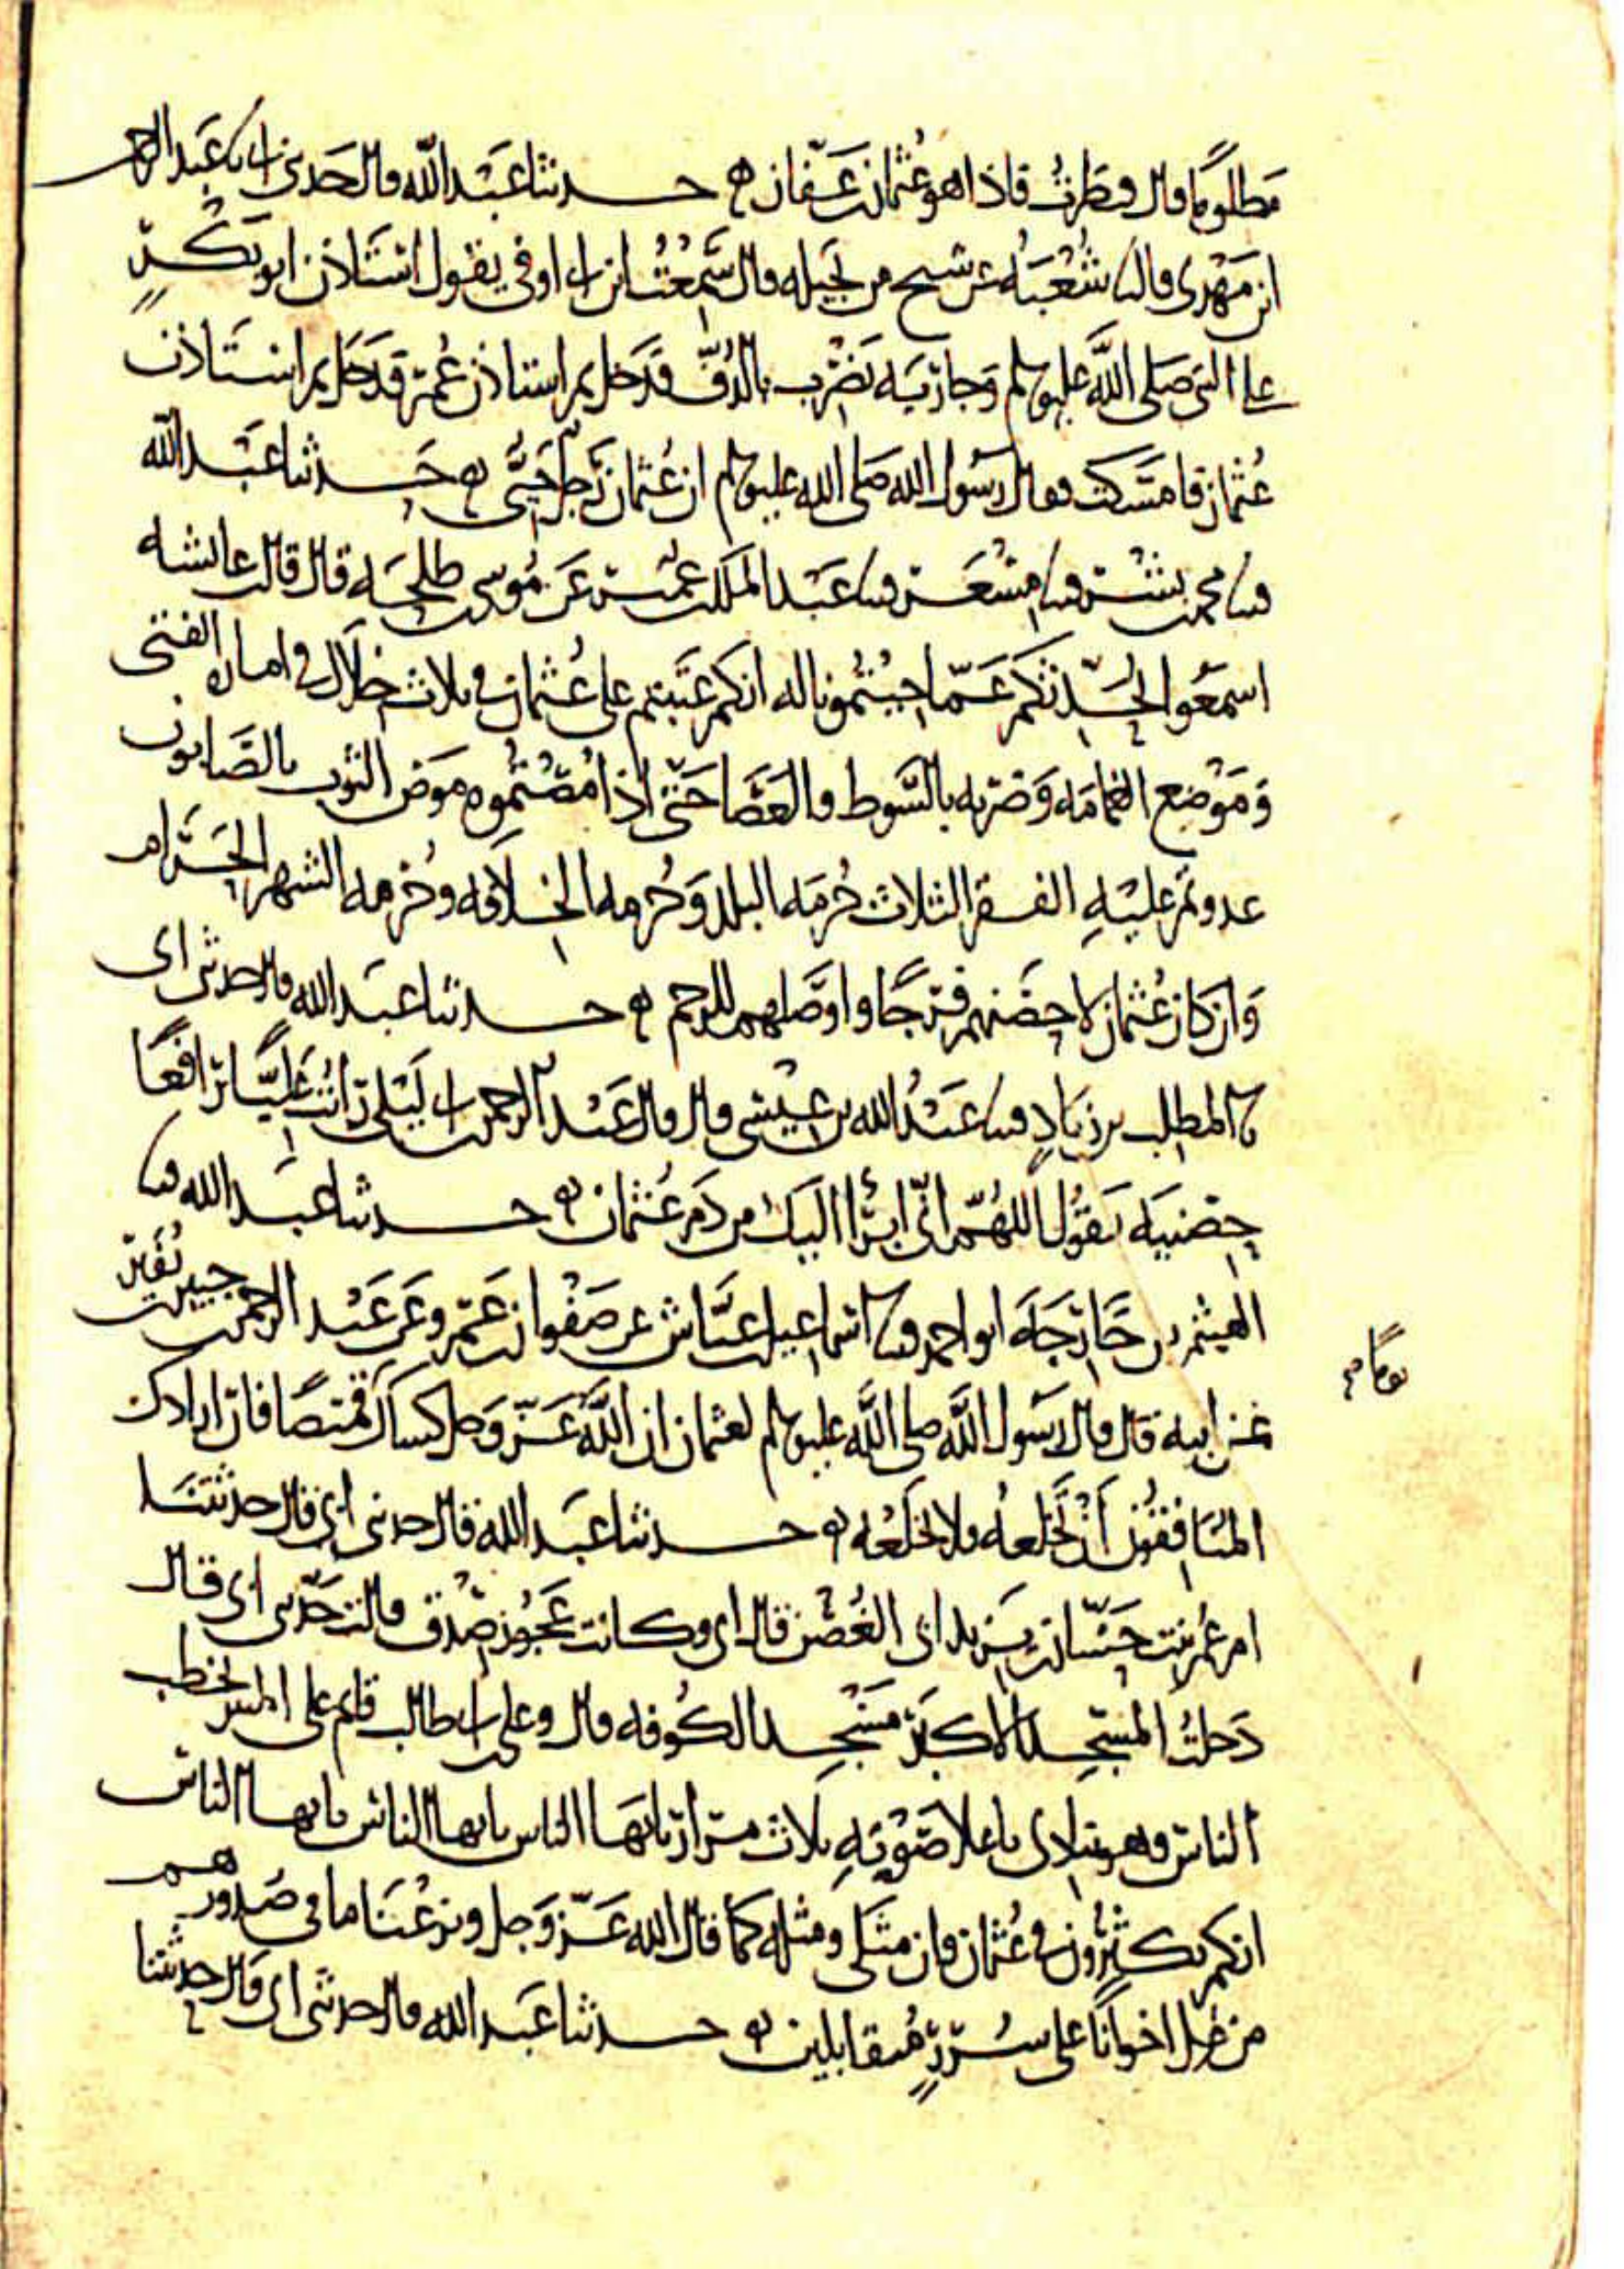 مظلوما قال فنظرت فاذا هو عثمان بن عفان ه حدثنا عبد الله قال حدثني ابي نا عبد الرحمن
ابن مهدي قال نا شعبة عن شيخ من بجيلة قال سمعت ابن ابي اوفى يقول استاذن ابو بكر
على النبي صلى الله عليه وسلم وجارية تضرب بالدف فدخل ثم استاذن عمر فدخل ثم استاذن
عثمان فامسكت فقال رسول الله صلى الله عليه وسلم ان عثمان رجل حيي ه حدثنا عبد الله
محمد بن بشر مسعر عبد الملك بن عمير عن موسى بن طلحة قال قالت عائشة
اسمعوا نحدثكم عما جئتمونا له انكم عتبتم على عثمان في ثلاث خلال في امارة الفتى
وموضع الغمامة وضربه بالسوط والعصا حتى اذا مصتموه موص الثوب بالصابون
عدوتم عليه الفقر الثلاث حرمة البلد وحرمة الخلافة وحرمة الشهر الحرام
وان كان عثمان لاحصنهم فرجا واوصلهم للرحم ه حدثنا عبد الله قال حدثني ابي
نا المطلب بن زياد عبد الله بن عيسى قال قال عبد الرحمن بن ابي ليلى رايت عليا رافعا
حضنيه يقول اللهم اني ابرا اليك من دم عثمان ه حدثنا عبد الله
الهيثم بن خارجة ابو احمد اسماعيل بن عياش عن صفوان بن عمرو عن عبد الرحمن بن جبير بن نفير
عن ابيه قال قال رسول الله صلى الله عليه وسلم لعثمان ان الله عز وجل كساك قميصا فان ارادك
يوما
المنافقون ان تخلعه فلا تخلعه ه حدثنا عبد الله قال حدثني ابي قال حدثتنا
ام عمر بنت حسان بن يزيد ابي الغصن قال ابي وكانت عجوز صدق قالت حدثني ابي قال
دخلت المسجد الاكبر مسجد الكوفة قال وعلي بن ابي طالب قائم على المنبر يخطب
الناس وهو ينادي باعلا صوته ثلاث مرار يا ايها الناس يا ايها الناس يا ايها الناس
انكم تكثرون في عثمان وان مثلي ومثله كما قال الله عز وجل ونزعنا ما في صدورهم
من غل اخوانا على سرر متقابلين ه حدثنا عبد الله قال حدثني ابي قال حدثنا